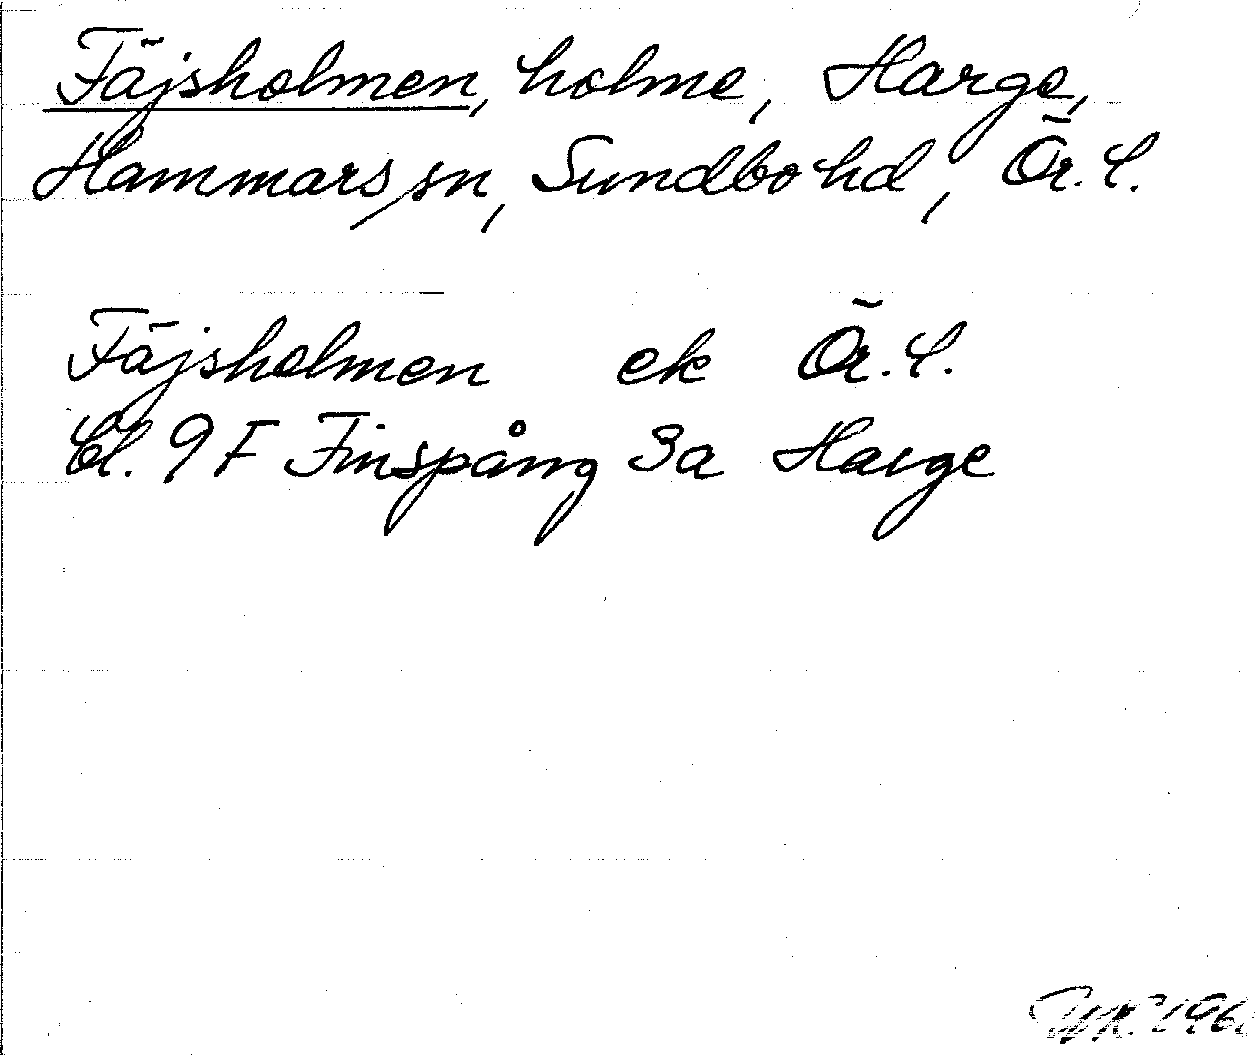 Fäjsholmen, holme, Harge,
Hammars sn, Sundbo hd, Ör. l.
Fäjsholmen ek Ör. l.
bl. 9 F Finspång 3a Harge